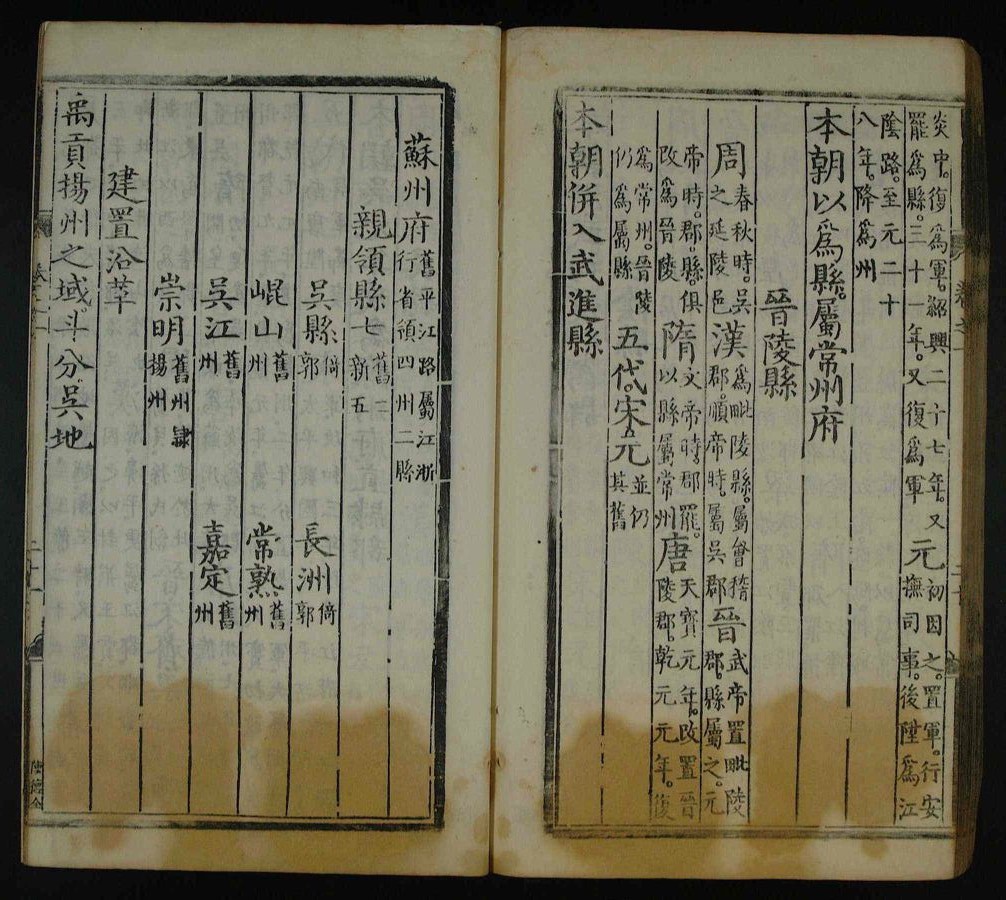 炎中。復爲軍。紹興二十七年。又罷爲縣。三十一年。又復爲軍 元初因之。置軍。行安撫司事。後陞爲江
陰路。至元二十八年。降爲州
本朝以爲縣。屬常州府
晉陵縣
周春秋時。吳之延陵邑 漢爲毗陵縣。屬會稽郡。順帝時。屬吳郡 晉武帝置毗陵郡。縣屬之。元
帝時。郡。縣。俱改爲晉陵 隋文帝時。郡罷。以縣屬常州 唐天寶元年。改置晉陵郡。乾元元年。復
爲常州。晉陵仍爲屬縣 五代。宋。元並仍其舊
本朝併入武進縣
蘇州府舊平江路屬江浙行省領四州二縣
親領縣七舊二新五
吳縣倚郭 長洲倚郭
崐山舊州 常熟舊州
吳江舊州 嘉定舊州
崇明舊州隷揚州
建置沿革
禹貢揚州之域。斗分。吳地